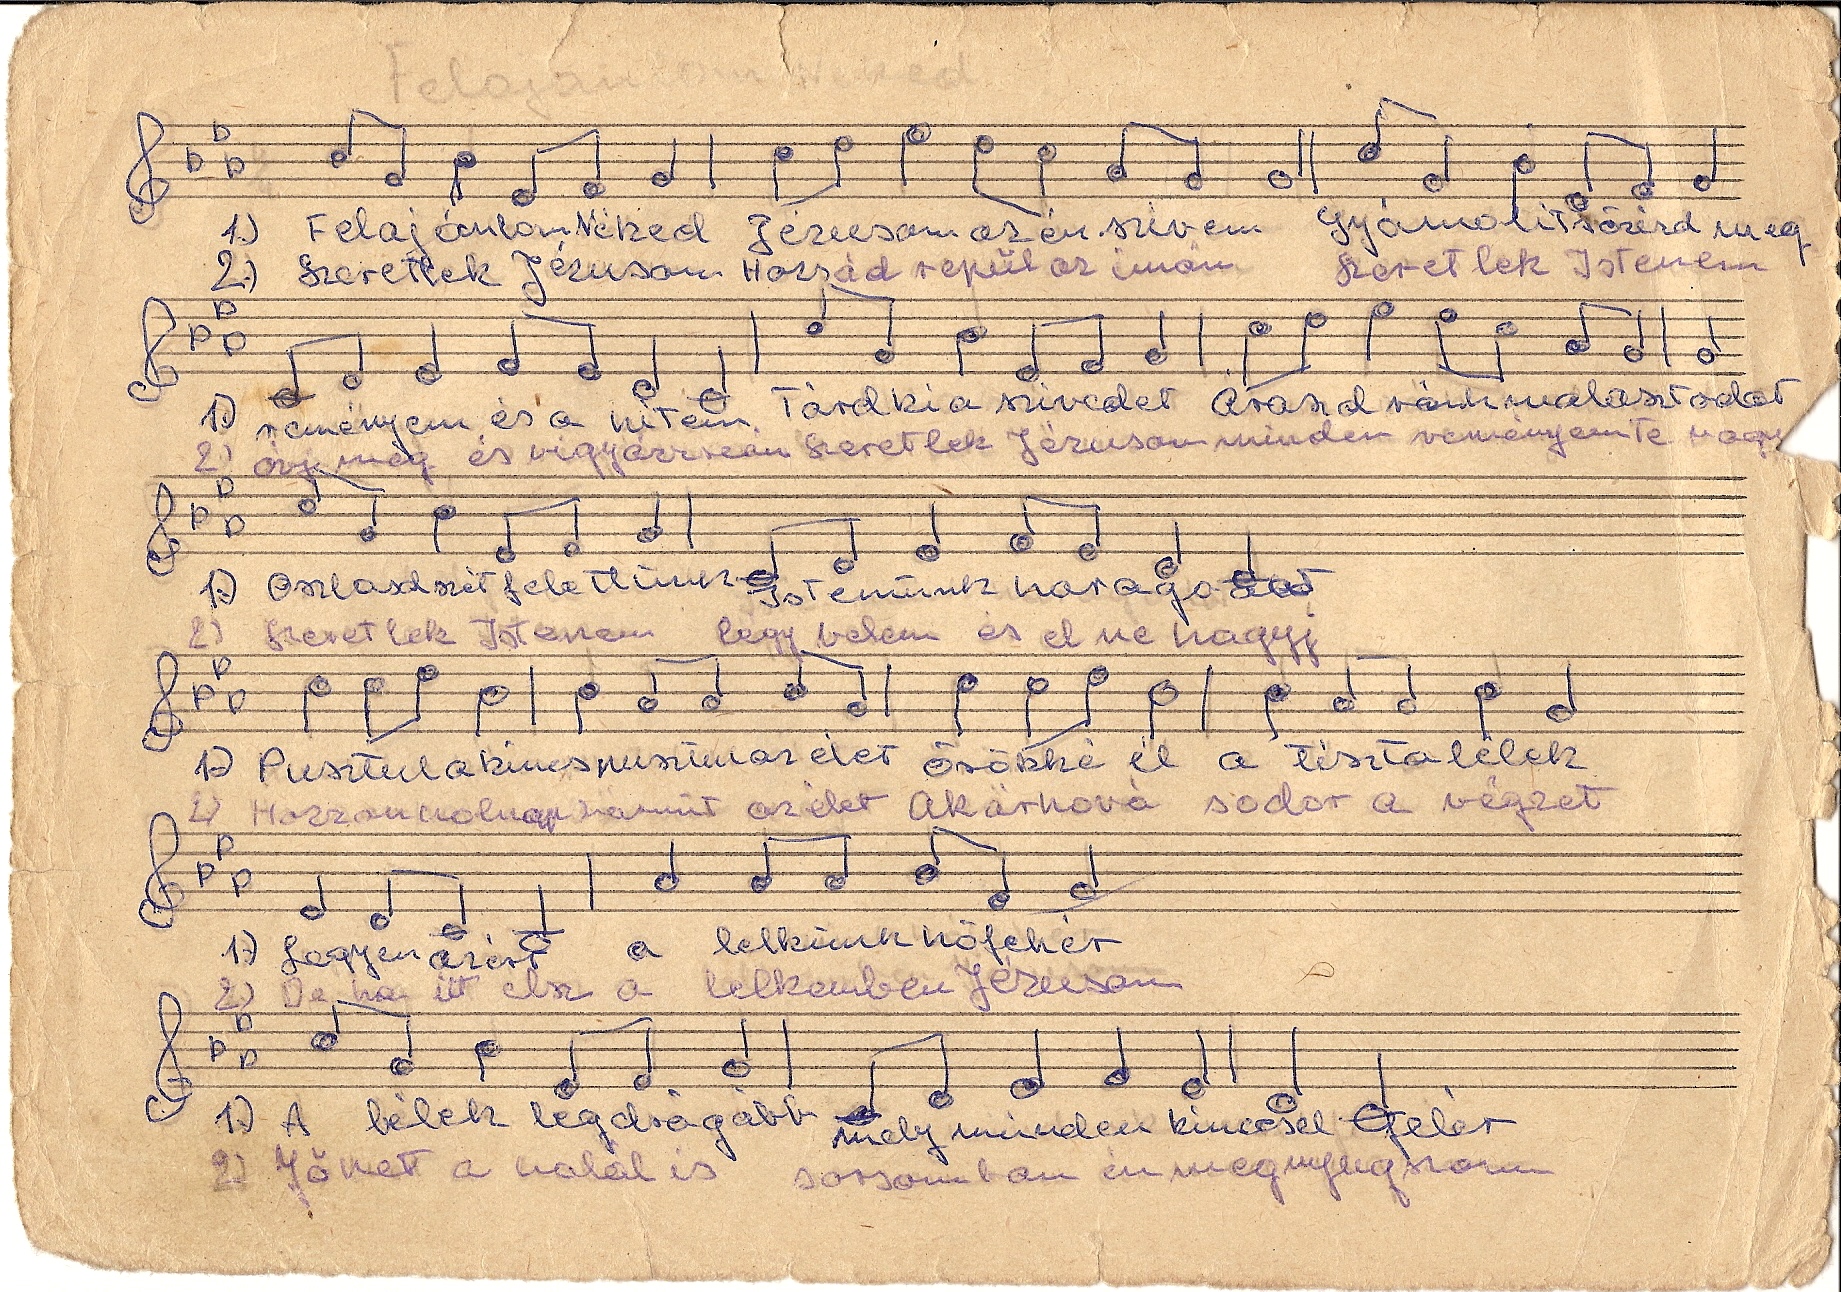 Felajánlom Neked
1.) Felajánlom Néked Jézusom az én szívem Gyámolítsőrízd meg
2.) Szeretlek Jézusom Hozzád repül az imám Szeretlek Istenem
1.) reményem és a hitem Tárdkia szívedet Áraszd ránk malasztodat
2.) óvj meg és vigyázz reám Szeretlek Jézusom minden reményem te vagy
1.) Oszlasd szét felettünk Istenünk haragodat
2.) Szeretlek Istenem légy velem és el ne hagyj
1.) Pusztul a kincs pusztul az élet Örökké él a tiszta lélek
2.) akárhová sodor a végzet
1.) Legyen azért a lelkünk hófehér
2.) De ha itt élsz a lelkemben Jézusom
1.) A lélek legdrágább mely minden kinccsel felér
2.) Jöhet a halál is sorsomban én megnyugszom